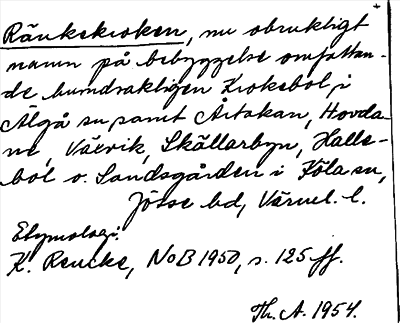 Ränkekroken, nu obrukligt
namn på bebyggelse omfattan-
de huvudsakligen Krokebol, i
Älgå sn, samt Åstakan, Hovda-
ne, Värvik, Skällarbyn, Halle-
bol o. Sandsgården i Köla sn,
Jösse hd, Värml. l.
Etymologi:
K. Rencke, NoB 1950, s. 125 ff.
Th. A. 1954.